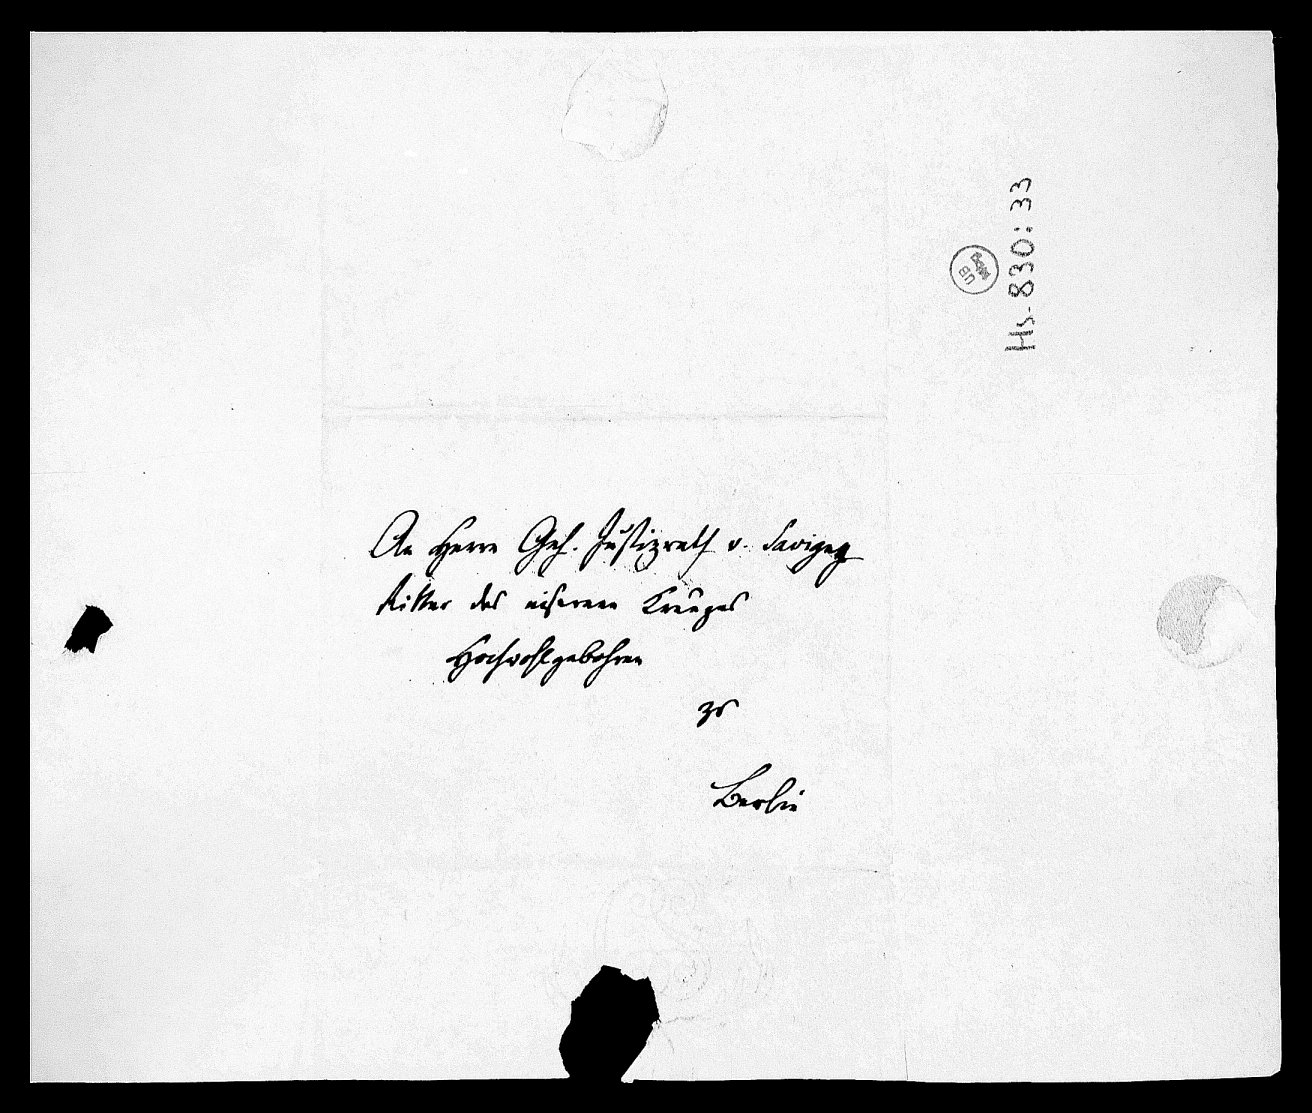 An Herrn Geh. Justizrath v. Savigny
Ritter des eisernen Kreuzes
Hochwohlgebohren
zu
Berlin
Hs. 830:33
UB